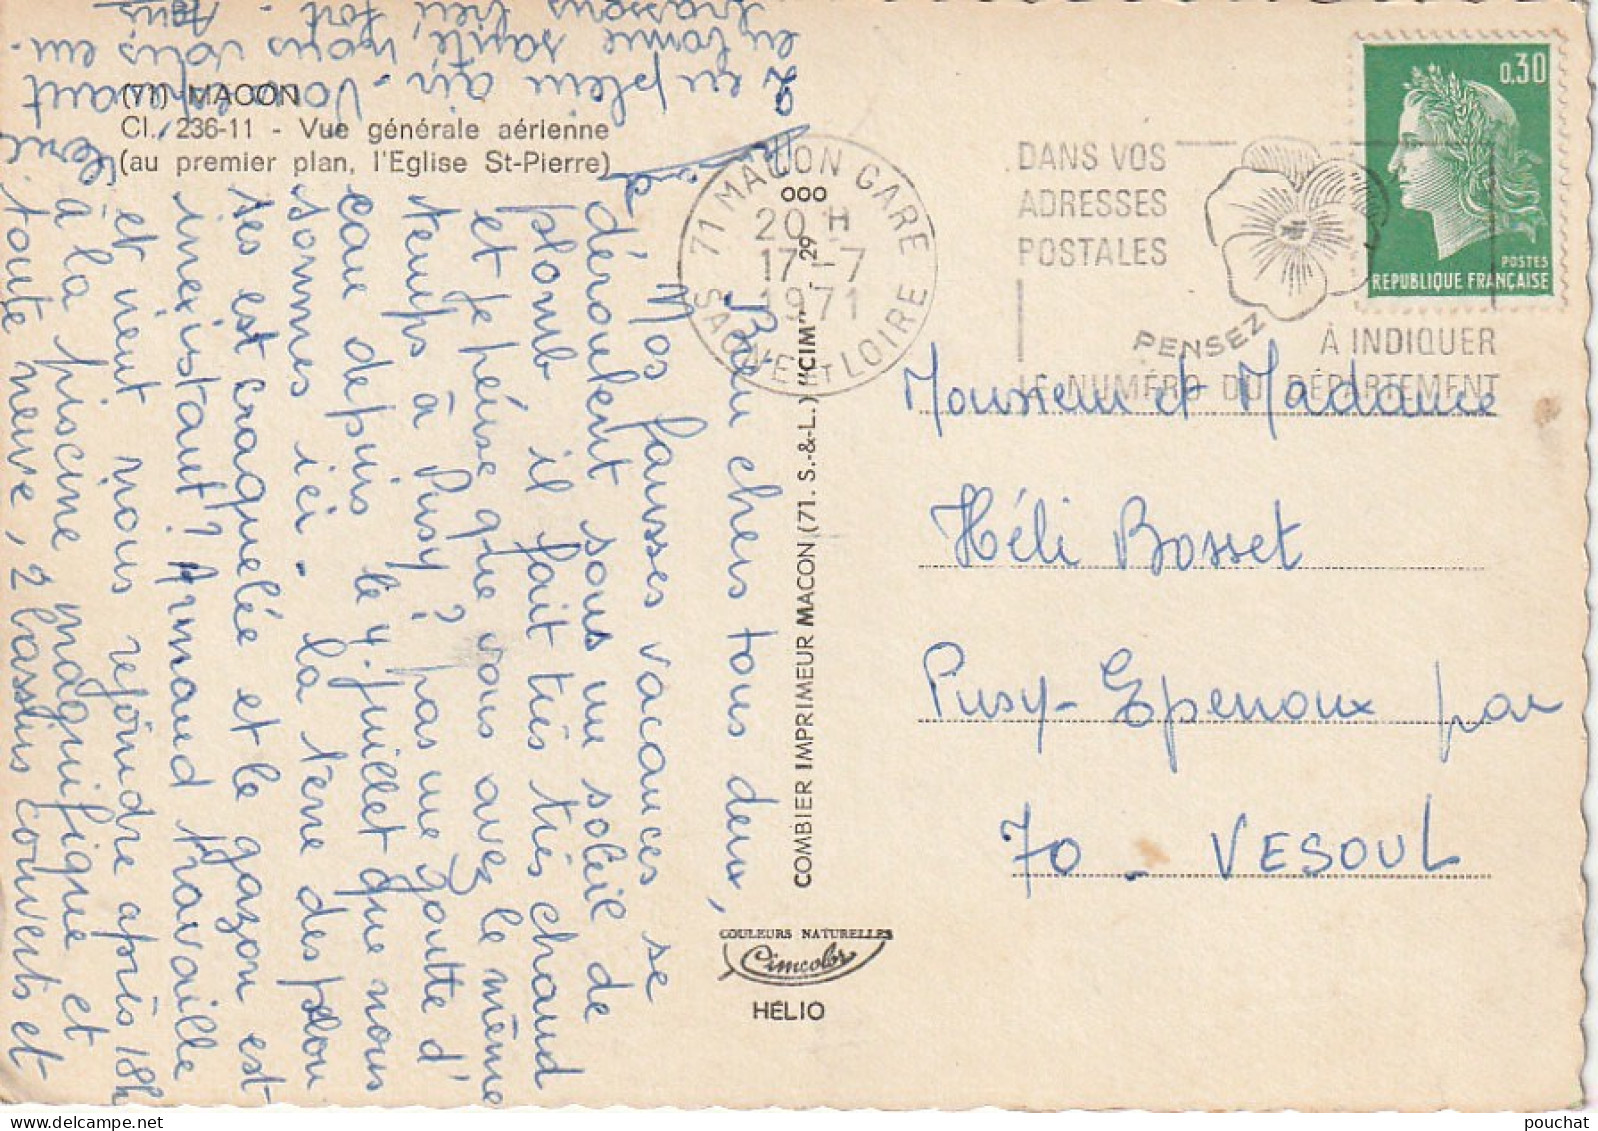 (71) MACON
Cl. 236-11 - Vue générale aérienne
(au premier plan, l'Eglise St-Pierre)
Bien chers tous deux,
Nos fausses vacances se
déroulent sous un soleil de
plomb il fait très très chaud
et je pense que vous avez le même
temps à Pusy? pas une goutte d'
eau depuis le 4 juillet que nous
sommes ici. la terre des pelou
ses est craquelée et le gazon est
inexistant? Armand travaille
et vient nous rejoindre après 18h
à la piscine magnifique et
toute neuve, 2 bassins couverts et
2 en plein air. Vous espérant
en bonne santé, nous vous em
brassons bien fort.
71 MACON GARE
20 H
17-7
1971
SAONE ET LOIRE
DANS VOS
ADRESSES
POSTALES
PENSEZ
À INDIQUER
LE NUMÉRO DU DÉPARTEMENT
0,30
POSTES
REPUBLIQUE FRANÇAISE
COMBIER IMPRIMEUR MACON (71. S.-&-L.) "CIM"
29
000
Monsieur et Madame
Héli Bosset
Pusy-Epenoux par
70 - VESOUL
COULEURS NATURELLES
Cimcolor
HÉLIO
pouchat